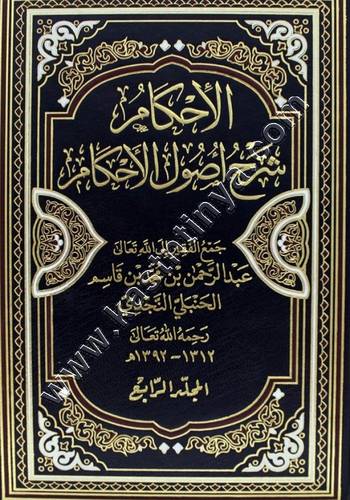 الإحكام
شرح أصول الأحكام
جمع الفقير إلى الله تعالى
عبد الرحمن بن محمد بن قاسم
الحنبلي النجدي
رحمه الله تعالى
١٣١٢ - ١٣٩٢ هـ
المجلد الرابع